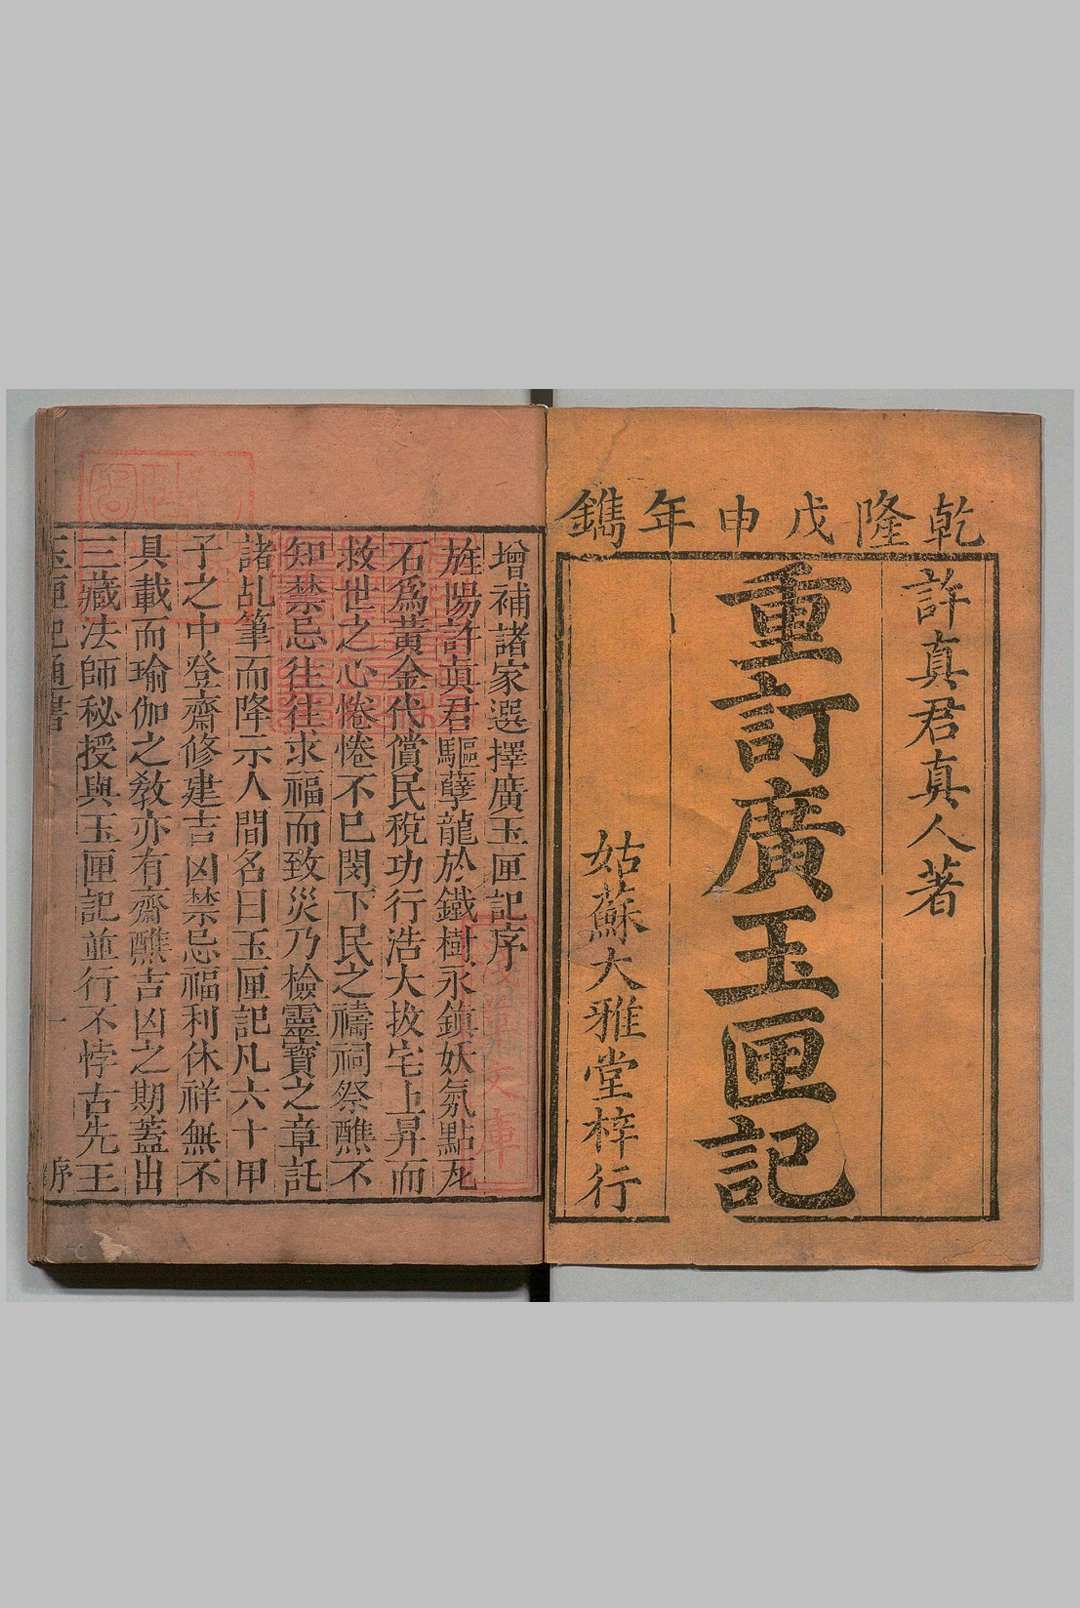 乾隆戊申年鐫
許真君真人著
重訂廣玉匣記
姑蘇大雅堂梓行
增補諸家選擇廣玉匣記序
旌陽許眞君驅孽龍於鐵樹永鎮妖氛點瓦
石爲黃金代償民稅功行浩大拔宅上昇而
救世之心惓惓不已閔下民之禱祠祭醮不
知禁忌往往求福而致災乃檢靈寶之章託
諸乩筆而降示人間名曰玉匣記凡六十甲
子之中登齋修建吉凶禁忌福利休祥無不
具載而瑜伽之教亦有齋醮吉凶之期蓋出
三藏法師秘授與玉匣記並行不悖古先王
玉匣記通書 序 一